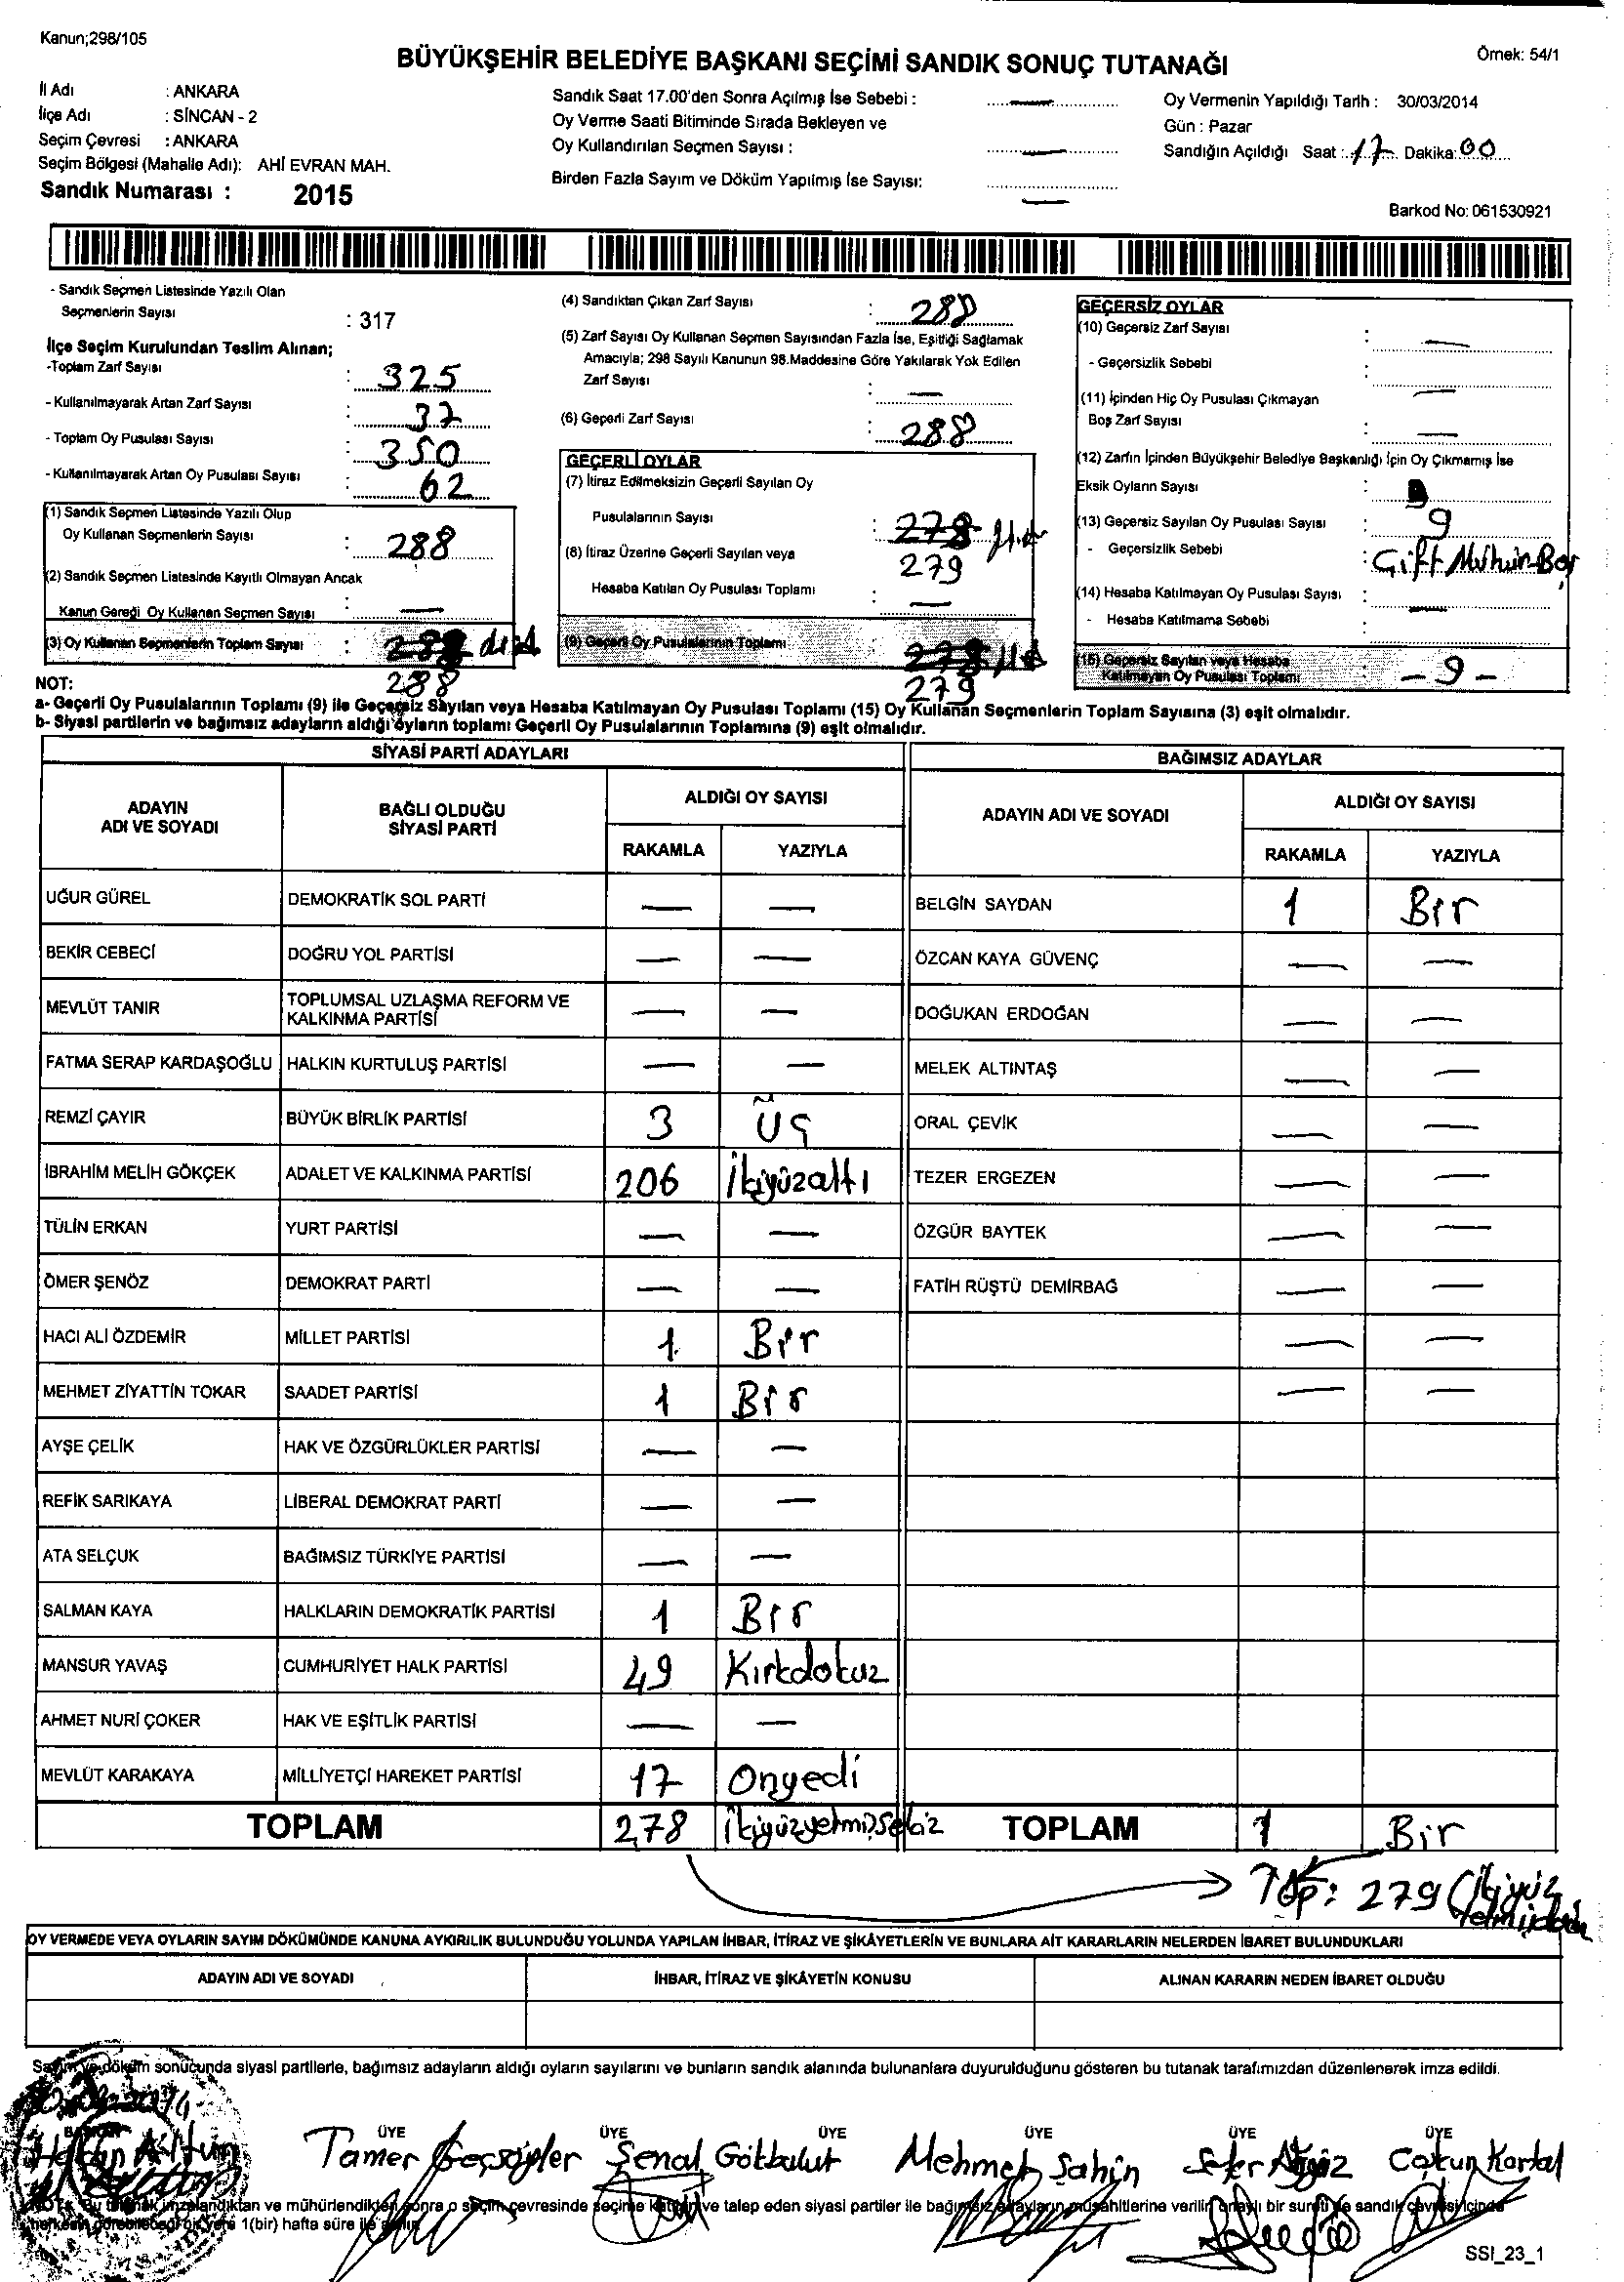 Kanun;298/105
BÜYÜKŞEHİR BELEDİYE BAŞKANI SEÇİMİ SANDIK SONUÇ TUTANAĞI
Örnek: 54/1
İl Adı : ANKARA
İlçe Adı : SİNCAN - 2
Seçim Çevresi : ANKARA
Seçim Bölgesi (Mahalle Adı): AHİ EVRAN MAH.
Sandık Numarası : 2015
Sandık Saat 17.00'den Sonra Açılmış İse Sebebi : —
Oy Verme Saati Bitiminde Sırada Bekleyen ve
Oy Kullandırılan Seçmen Sayısı : —
Birden Fazla Sayım ve Döküm Yapılmış İse Sayısı: —
Oy Vermenin Yapıldığı Tarih : 30/03/2014
Gün : Pazar
Sandığın Açıldığı Saat : 17 Dakika: 00
Barkod No: 061530921
- Sandık Seçmen Listesinde Yazılı Olan
Seçmenlerin Sayısı : 317
İlçe Seçim Kurulundan Teslim Alınan;
-Toplam Zarf Sayısı : 325
- Kullanılmayarak Artan Zarf Sayısı : 37
- Toplam Oy Pusulası Sayısı : 350
- Kullanılmayarak Artan Oy Pusulası Sayısı : 62
(1) Sandık Seçmen Listesinde Yazılı Olup
Oy Kullanan Seçmenlerin Sayısı : 288
(2) Sandık Seçmen Listesinde Kayıtlı Olmayan Ancak
Kanun Gereği Oy Kullanan Seçmen Sayısı : —
(3) Oy Kullanan Seçmenlerin Toplam Sayısı :
288
(4) Sandıktan Çıkan Zarf Sayısı : 288
(5) Zarf Sayısı Oy Kullanan Seçmen Sayısından Fazla İse, Eşitliği Sağlamak
Amacıyla; 298 Sayılı Kanunun 98.Maddesine Göre Yakılarak Yok Edilen
Zarf Sayısı : —
(6) Geçerli Zarf Sayısı : 288
GEÇERLİ OYLAR
(7) İtiraz Edilmeksizin Geçerli Sayılan Oy
Pusulalarının Sayısı : 278
279
(8) İtiraz Üzerine Geçerli Sayılan veya
Hesaba Katılan Oy Pusulası Toplamı : —
(9) Geçerli Oy Pusulalarının Toplamı 278
279
GEÇERSİZ OYLAR
(10) Geçersiz Zarf Sayısı : —
- Geçersizlik Sebebi :
(11) İçinden Hiç Oy Pusulası Çıkmayan —
Boş Zarf Sayısı : —
(12) Zarfın İçinden Büyükşehir Belediye Başkanlığı İçin Oy Çıkmamış İse
Eksik Oyların Sayısı :
(13) Geçersiz Sayılan Oy Pusulası Sayısı : 9
- Geçersizlik Sebebi : Çift Mühür-Boş
(14) Hesaba Katılmayan Oy Pusulası Sayısı : —
- Hesaba Katılmama Sebebi :
(15) Geçersiz Sayılan veya Hesaba
Katılmayan Oy Pusulası Toplamı : - 9 -
NOT:
a- Geçerli Oy Pusulalarının Toplamı (9) ile Geçersiz Sayılan veya Hesaba Katılmayan Oy Pusulası Toplamı (15) Oy Kullanan Seçmenlerin Toplam Sayısına (3) eşit olmalıdır.
b- Siyasi partilerin ve bağımsız adayların aldığı oyların toplamı Geçerli Oy Pusulalarının Toplamına (9) eşit olmalıdır.
SİYASİ PARTİ ADAYLARI
ADAYIN ADI VE SOYADI
BAĞLI OLDUĞU SİYASİ PARTİ
ALDIĞI OY SAYISI
RAKAMLA YAZIYLA
UĞUR GÜREL DEMOKRATİK SOL PARTİ — —
BEKİR CEBECİ DOĞRU YOL PARTİSİ — —
MEVLÜT TANIR TOPLUMSAL UZLAŞMA REFORM VE KALKINMA PARTİSİ — —
FATMA SERAP KARDAŞOĞLU HALKIN KURTULUŞ PARTİSİ — —
REMZİ ÇAYIR BÜYÜK BİRLİK PARTİSİ 3 Üç
İBRAHİM MELİH GÖKÇEK ADALET VE KALKINMA PARTİSİ 206 İkiyüzaltı
TÜLİN ERKAN YURT PARTİSİ — —
ÖMER ŞENÖZ DEMOKRAT PARTİ — —
HACI ALİ ÖZDEMİR MİLLET PARTİSİ 1 Bir
MEHMET ZİYATTİN TOKAR SAADET PARTİSİ 1 Bir
AYŞE ÇELİK HAK VE ÖZGÜRLÜKLER PARTİSİ — —
REFİK SARIKAYA LİBERAL DEMOKRAT PARTİ — —
ATA SELÇUK BAĞIMSIZ TÜRKİYE PARTİSİ — —
SALMAN KAYA HALKLARIN DEMOKRATİK PARTİSİ 1 Bir
MANSUR YAVAŞ CUMHURİYET HALK PARTİSİ 49 Kırkdokuz
AHMET NURİ ÇOKER HAK VE EŞİTLİK PARTİSİ — —
MEVLÜT KARAKAYA MİLLİYETÇİ HAREKET PARTİSİ 17 Onyedi
TOPLAM 278 İkiyüzyetmişsekiz
BAĞIMSIZ ADAYLAR
ADAYIN ADI VE SOYADI
ALDIĞI OY SAYISI
RAKAMLA YAZIYLA
BELGİN SAYDAN 1 Bir
ÖZCAN KAYA GÜVENÇ — —
DOĞUKAN ERDOĞAN — —
MELEK ALTINTAŞ — —
ORAL ÇEVİK — —
TEZER ERGEZEN — —
ÖZGÜR BAYTEK — —
FATİH RÜŞTÜ DEMİRBAĞ — —
— —
— —
TOPLAM 1 Bir
Top: 279 (İkiyüz
OY VERMEDE VEYA OYLARIN SAYIM DÖKÜMÜNDE KANUNA AYKIRILIK BULUNDUĞU YOLUNDA YAPILAN İHBAR, İTİRAZ VE ŞİKÂYETLERİN VE BUNLARA AİT KARARLARIN NELERDEN İBARET BULUNDUKLARI
ADAYIN ADI VE SOYADI İHBAR, İTİRAZ VE ŞİKÂYETİN KONUSU ALINAN KARARIN NEDEN İBARET OLDUĞU
Sayım ve döküm sonucunda siyasi partilerle, bağımsız adayların aldığı oyların sayılarını ve bunların sandık alanında bulunanlara duyurulduğunu gösteren bu tutanak tarafımızdan düzenlenerek imza edildi.
ÜYE ÜYE ÜYE ÜYE ÜYE ÜYE
Tamer Şenal Gökbulut Mehmet Şahin Coşkun Kartal
NOT: Bu tutanak imzalandıktan ve mühürlendikten sonra o seçim çevresinde seçime katılan ve talep eden siyasi partiler ile bağımsız adayların müşahitlerine verilir onaylı bir sureti de sandık çevresi içinde
herkesin görebileceği bir yere 1(bir) hafta süre ile asılır.
SSI_23_1